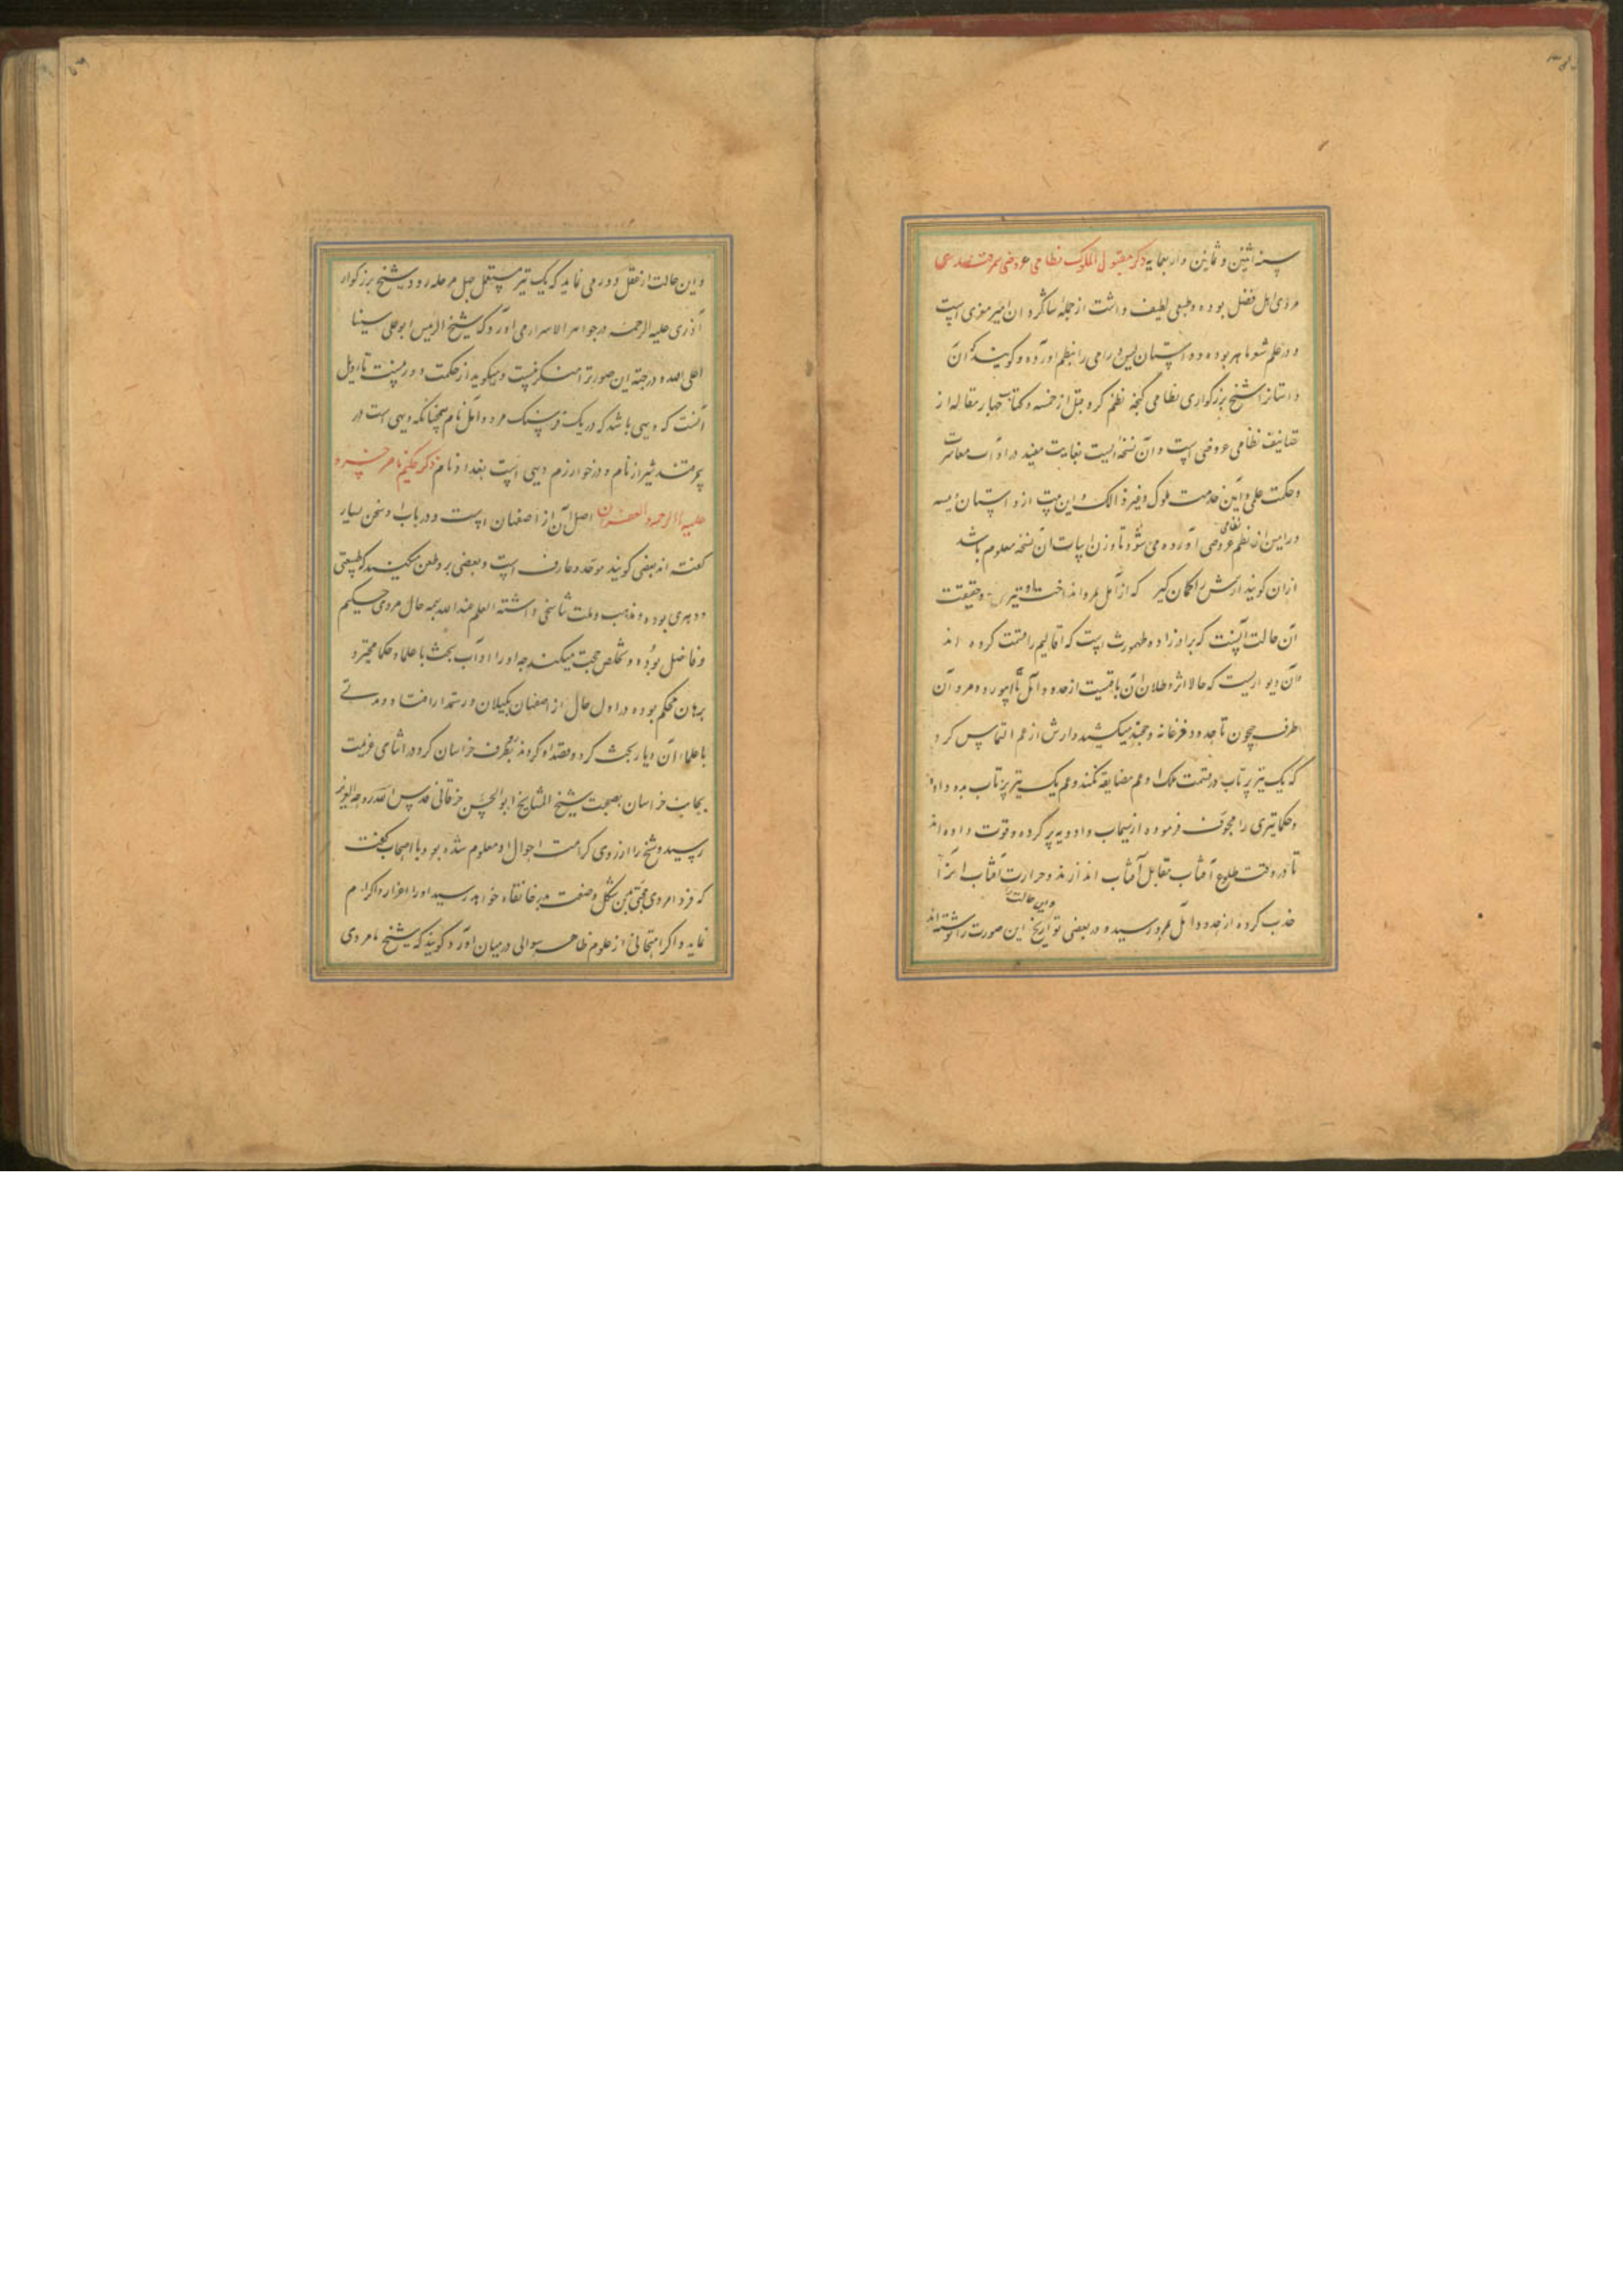 سنه اثنین و ثمانین و اربعمایه ذکر مقبول الملوک نظامی عروضی سمرقندی
مردی اهل فضل بوده و طبعی لطیف داشت از جمله شاگردان امیر معزی است
و در علم شعر ماهر بوده و داستان ویس و رامی را بنظم آورده و گویند که آن
داستانرا شیخ بزرگواری نظامی گنجه نظم کرد قبل از خمسه و کتاب چهار مقاله از
تصانیف نظامی عروضی است و آن نسخه ایست بغایت مفید در آداب معاشرت
و حکمت علمی و آیین خدمت ملوک و غیر ذالک و این بیت از داستان ویسه
و رامین از نظم نظامی عروضی آورده می شود تا وزن ابیات آن نسخه معلوم باشد
ازان گویند ارش را کمان گیر که از آمل بمرو انداخت او تیر و حقیقت
آن حالت آنست که برادرزاده طهمورث است که اقالیم را قسمت کرده اند
و آن دیواریست که حالا اثر و طلال آن باقیست از حدود آمل تا ابیورد و مرو و آن
طرف جیحون تا حدود فرغانه و خجند میکشد و ارش از عم التماس کرد
که یک تیر پرتاب در قسمت ملک او عم مضایقه نکند و عم یک تیر پرتاب بدو داد
و حکما تیری را مجوف فرموده از سیماب و ادویه پر کرده و قوت داده اند
تا در وقت طلوع آفتاب مقابل آفتاب اندازند و حرارت آفتاب آنرا
جذب کرده از حدود آمل بمرو رسید و در بعضی تواریخ این صورت را نوشته اند
و این حالت
و این حالت از عقل دور می نماید که یک تیر مستقل چهل مرحله رود و شیخ بزرگوار
آذری علیه الرحمه در جواهر الاسرار می آورد که شیخ الرئیس ابو علی سینا
اعلی الله درجته این صورترا منکر نیست و میگوید از حکمت دور نیست تا اویل
آنست که دیهی باشد که در یک فرسنگ مرو و آمل نام همچنانکه دیهی است در
شیراز نام و در خوارزم دیهی است بغداد نام ذکر حکیم ناصر خسرو
علیه الرحمه و الغفران اصل آن از اصفهان است و در باب او سخن بسیار
گفته اند بعضی گویند موحد و عارف است و بعضی بر و طعن میکنند که طبیعتی
و دهری بوده و مذهب و ملت تناسخی داشته العلم عند الله بهمه حال مردی حکیم
و فاضل بوده و تخلص حجت میکند چه او را در آداب بحث با علما و حکما حجت و
برهان محکم بوده در اول حال از اصفهان بگیلان و رستمدار افتاد و مدتی
با علماء آن دیار بحث کرد و قصد او کردند بطرف خراسان کرد و در اثنای عزیمت
بجانب خراسان بصحبت شیخ المشایخ ابو الحسن خرقانی قدس الله روحه العزیز
رسید و شیخ را از روی کرامت احوال او معلوم شده بود و با اصحاب گفت
که فردا مردی حجتی بدین شکل و صفت بدر خانقاه خواهد رسید او را اعزاز و اکرام
نمایید و اگر امتحانی از علوم ظاهر سوالی در میان آورد گویند که شیخ ما مردی